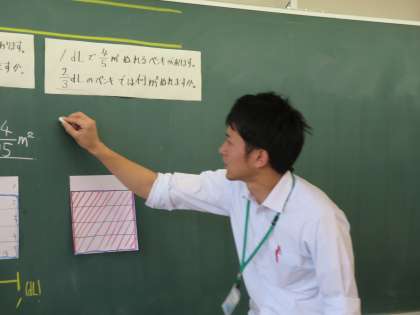 あります。
すか。
1dLで4/5m²ぬれるペンキがあります。
2/3dLのペンキでは何m²ぬれますか。
4/5m²
(dL)